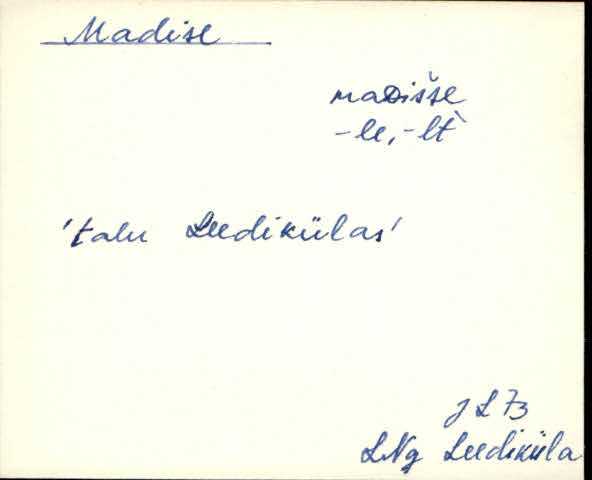 Madise
maDišše
-le, -lt̀
'talu Leedikülas'
JL 73
LNg Leediküla